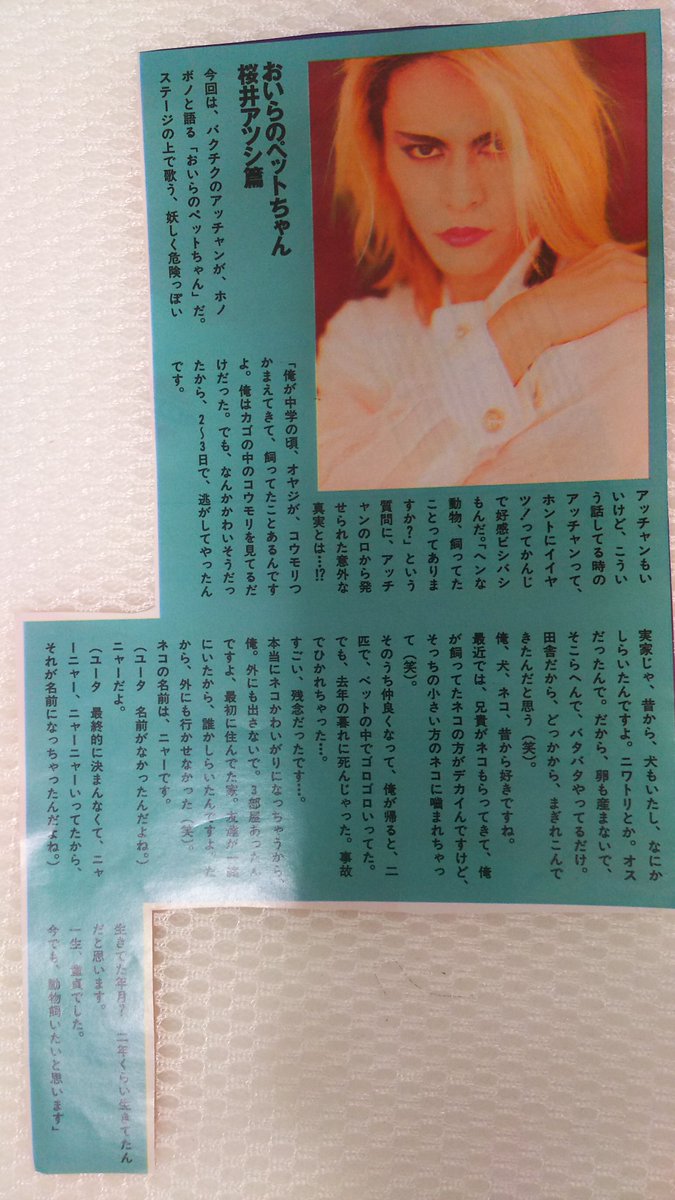 おいらのペットちゃん
桜井アツシ篇
今回は、バクチクのアッチャンが、ホノ
ボノと語る「おいらのペットちゃん」だ。
ステージの上で歌う、妖しく危険っぽい
アッチャンもい
いけど、こうい
う話してる時の
アッチャンって、
ホントにイイヤ
ツ!ってかんじ
で好感ビシバシ
もんだ。「ヘンな
動物、飼ってた
ことってありま
すか?」という
質問に、アッチ
ャンの口から発
せられた意外な
真実とは…!?
「俺が中学の頃、オヤジが、コウモリつ
かまえてきて、飼ってたことあるんです
よ。俺はカゴの中のコウモリを見てるだ
けだった。でも、なんかかわいそうだっ
たから、2〜3日で、逃がしてやったん
です。
実家じゃ、昔から、犬もいたし、なにか
しらいたんですよ。ニワトリとか。オス
だったんで。だから、卵も産まないで、
そこらへんで、バタバタやってるだけ。
田舎だから、どっかから、まぎれこんで
きたんだと思う(笑)。
俺、犬、ネコ、昔から好きですね。
最近では、兄貴がネコもらってきて、俺
が飼ってたネコの方がデカイんですけど、
そっちの小さい方のネコに噛まれちゃっ
て(笑)。
そのうち仲良くなって、俺が帰ると、二
匹で、ベットの中でゴロゴロいってた。
でも、去年の暮れに死んじゃった。事故
でひかれちゃった…。
すごい、残念だったです…。
本当にネコかわいがりになっちゃうから、
俺。外にも出さないで。3部屋あったん
ですよ、最初に住んでた家。友達が一緒
にいたから、誰かしらいたんですよ。だ
から、外にも行かせなかった(笑)。
ネコの名前は、ニャーです。
(ユータ 名前がなかったんだよね。)
ニャーだよ。
(ユータ 最終的に決まんなくて、ニャ
ーニャー、ニャーニャーいってたから、
それが名前になっちゃったんだよね。)
生きてた年月? 二年くらい生きてたん
だと思います。
一生、童貞でした。
今でも、動物飼いたいと思います」